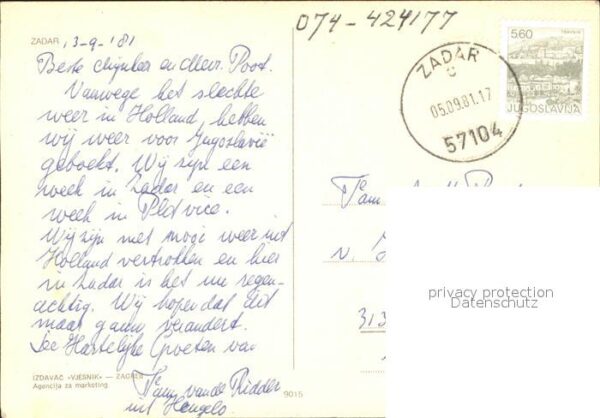 074-424177
ZADAR, 3-9-'81
Beste Mijnheer en Mevr. Poot.
Vanwege het slechte
weer in Holland, hebben
wij weer voor Jugoslavië
geboekt. Wij zijn een
week in Zadar en een
week in Plitvice.
Wij zijn met mooi weer uit
Holland vertrokken en hier
in Zadar is het nu regen-
achtig. Wij hopen dat dit
maar gauw verandert.
Hartelijke Groeten van
Fam. van de Ridder
uit Hengelo.
IZDAVAČ «VJESNIK» — ZAGREB
Agencija za marketing
9015
5,60
TRAVNIK
JUGOSLAVIJA
ZADAR
05.09.81.17
57104
Fam.
313
privacy protection
Datenschutz